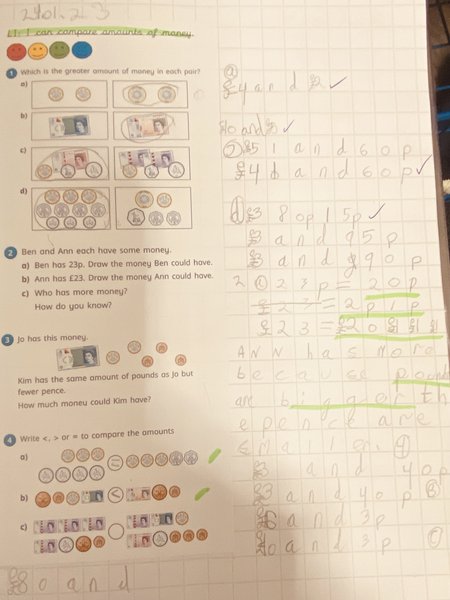 24.01.23
LI: I can compare amounts of money.
1 Which is the greater amount of money in each pair?
a)
b)
c)
d)
2 Ben and Ann each have some money.
a) Ben has 23p. Draw the money Ben could have.
b) Ann has £23. Draw the money Ann could have.
c) Who has more money?
How do you know?
3 Jo has this money.
Kim has the same amount of pounds as Jo but
fewer pence.
How much money could Kim have?
4 Write <, > or = to compare the amounts
a) =
b) <
c)
a
£4 and
and
£51 and 60p
and 60p
d £3 80p 15p
£3 and 95p
£3 and 90p
2 23p = 20p
£23 = 2p 1p
£23 = £20
ANN has more
because pound
are bigger th
e pence are
smaller
and 40p
£3 and 40p
and 3p
and 3p
and